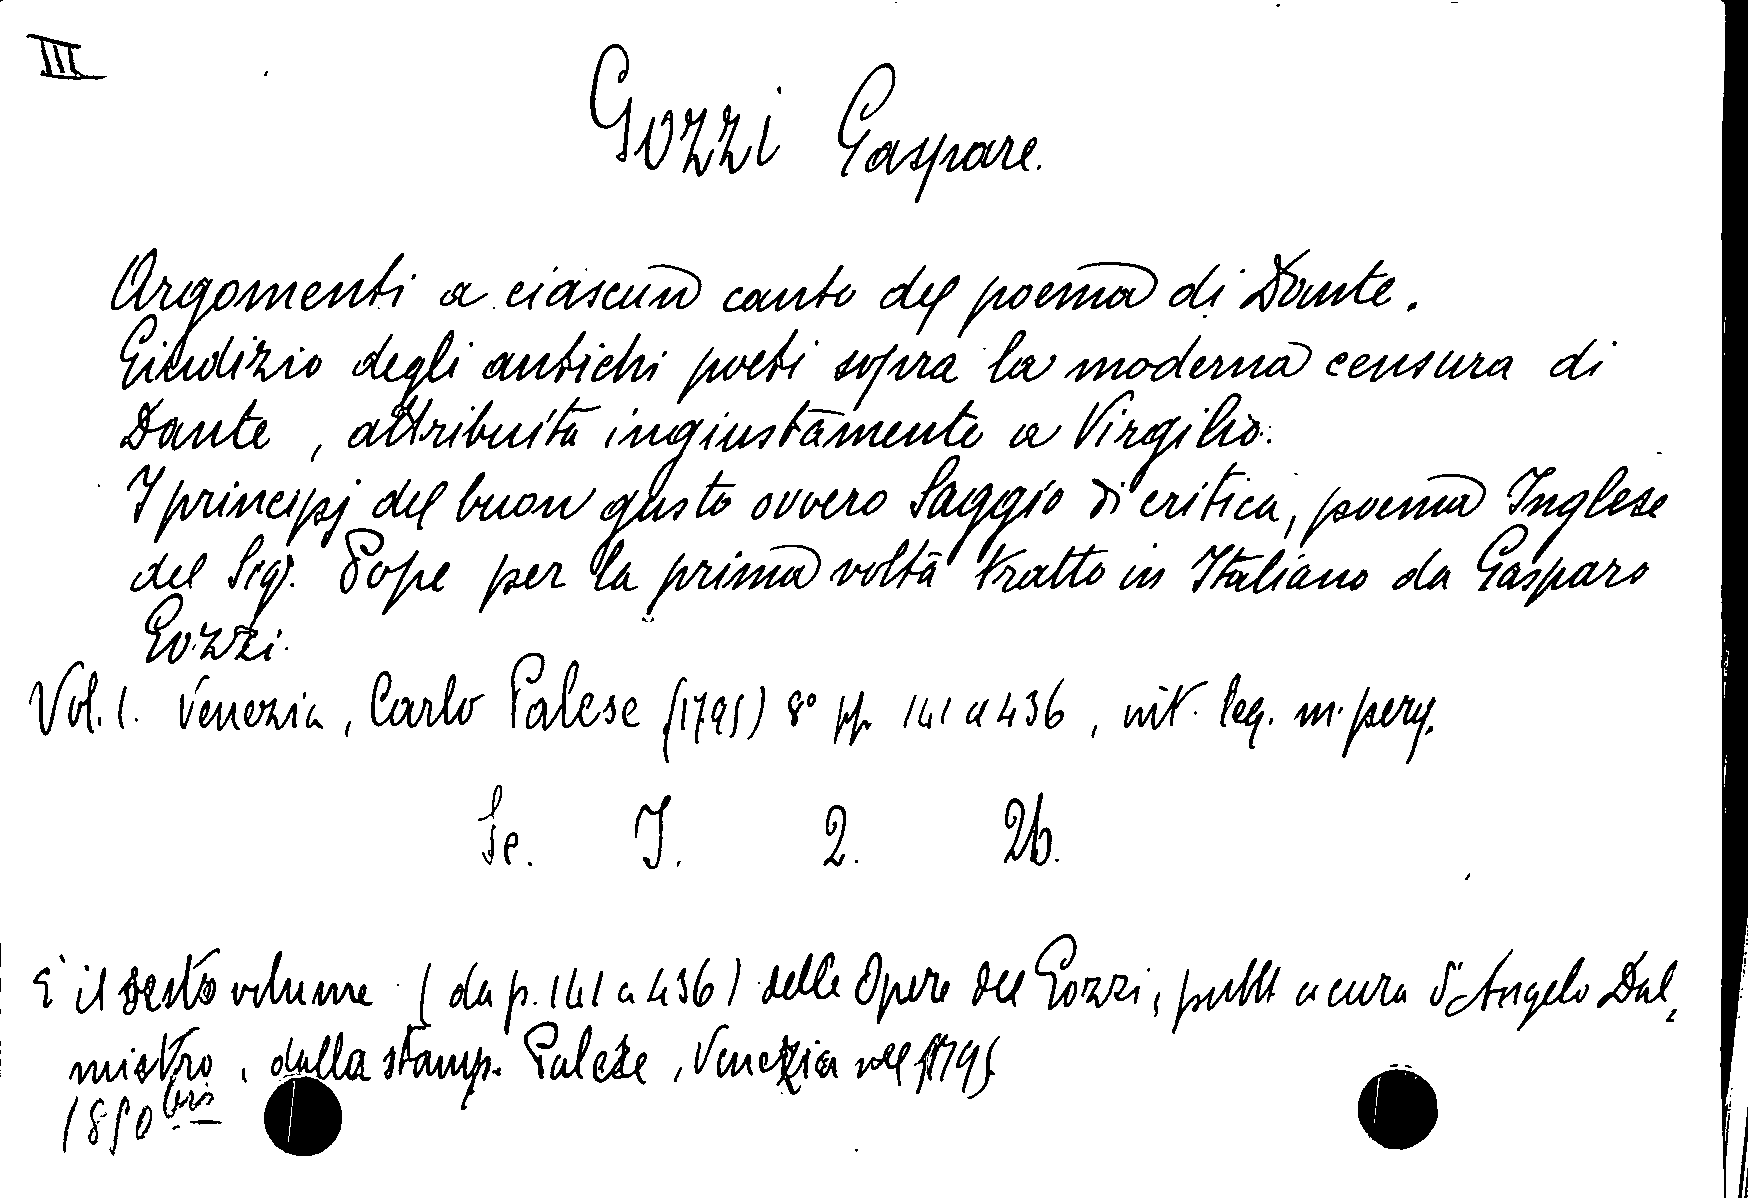 III
Gozzi Gaspare.
Argomenti a ciascun canto del poema di Dante.
Giudizio degli antichi poeti sopra la moderna censura di
Dante, attribuita ingiustamente a Virgilio.
I principj del buon gusto ovvero Saggio di critica, poema Inglese
del Sigr. Pope per la prima volta tratto in Italiano da Gasparo
Gozzi.
Vol. 1. Venezia, Carlo Palese (1795) 8° pp. 141 a 436, int. leg. m. perg.
Se. I. 2. 26.
È il sesto volume (da p. 141 a 436) delle Opere del Gozzi, pubbl a cura d'Angelo Dal,
mistro, dalla stamp. Palese, Venezia nel 1795
1850 bis